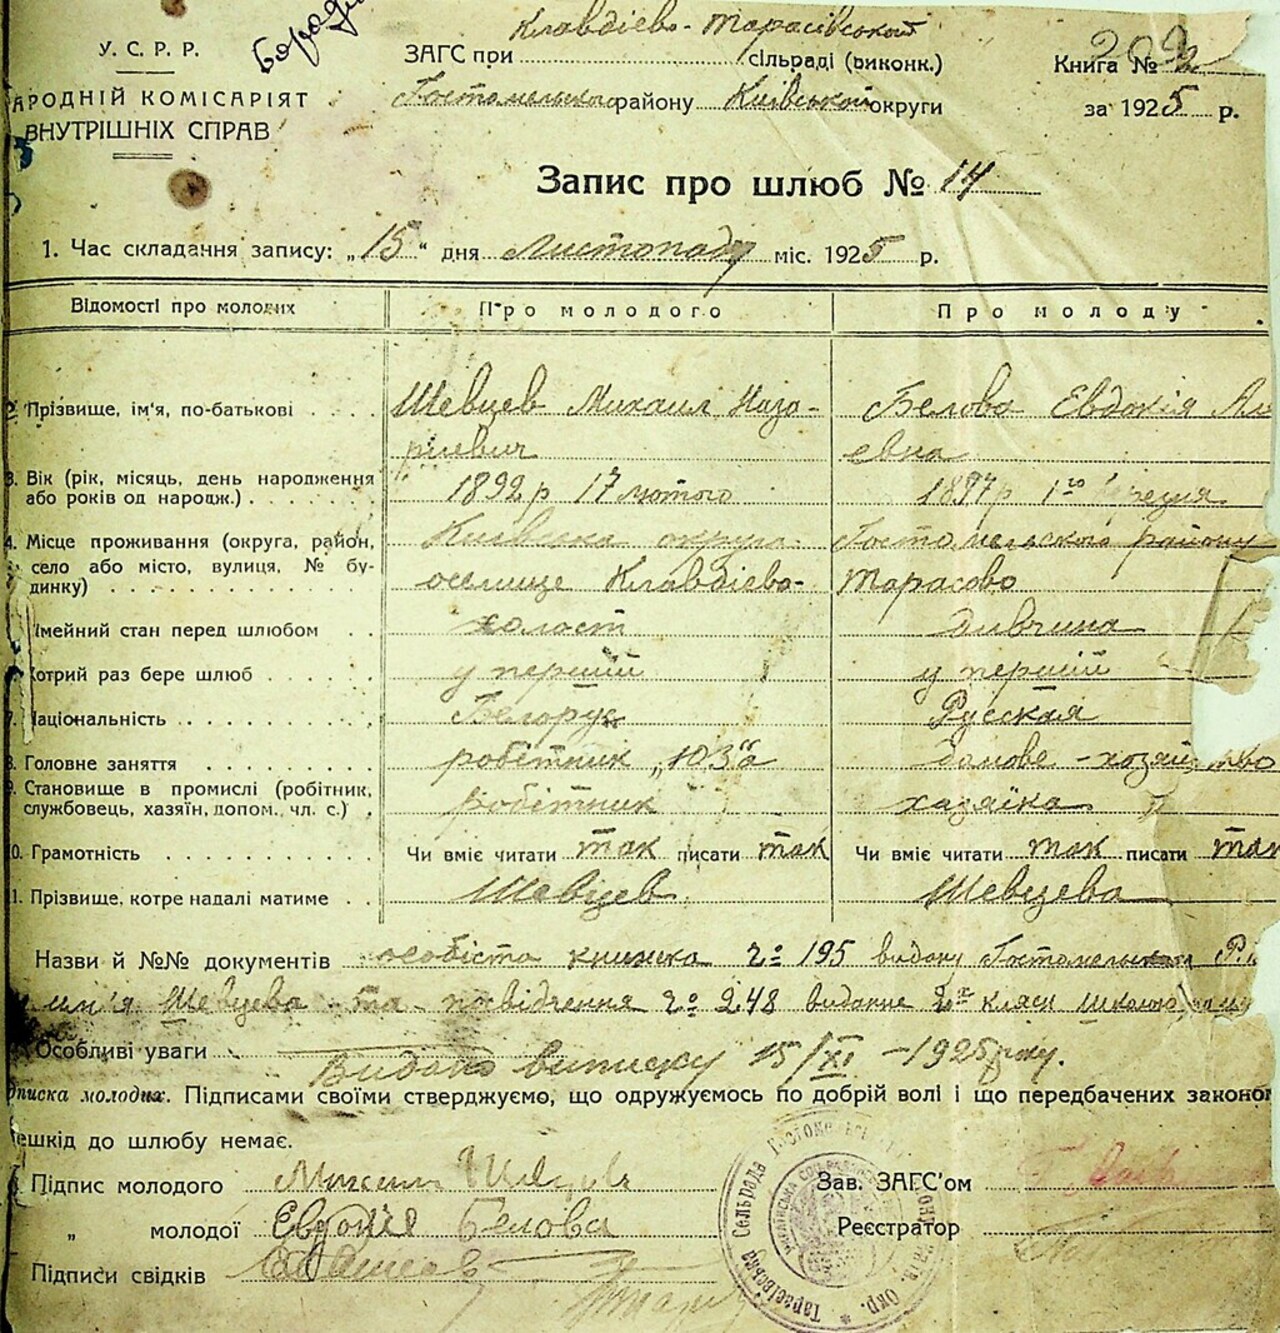 У. С. Р. Р.
АРОДНІЙ КОМІСАРІЯТ
ВНУТРІШНІХ СПРАВ
Клавдієво-Тарасівський
ЗАГС при сільраді (виконк.)
Гостомельського району Київської округи
Книга №
за 1925 р.
Запис про шлюб № 14
1. Час складання запису: „15" дня Листопаду міс. 1925 р.
Відомості про молодих Про молодого Про молоду
2. Прізвище, ім'я, по-батькові Шевцев Михаил Наза- Белова Евдокія Ал
риевич евна
3. Вік (рік, місяць, день народження або років од народж.) 1892 р 17 лютого 1897 р 1го березня
4. Місце проживання (округа, район, Київська округа Гостомельського району
село або місто, вулиця, № бу- оселище Клавдієво- Тарасово
динку)
імейний стан перед шлюбом холост дивчина
отрий раз бере шлюб у перший у перший
7. Національність Белорус Русская
8. Головне заняття робітник „ЮЗ" домове-хозяйство
9. Становище в промислі (робітник, службовець, хазяїн, допом. чл. с.) робітник хазяїка
10. Грамотність Чи вміє читати так писати так Чи вміє читати так писати так
11. Прізвище, котре надалі матиме Шевцев Шевцева
Назви й №№ документів особіста книжка 195 видану Гостомельським Р.
імня Шевцева та посвідчення 248 видане кляси школою
Особливі уваги
Видано виписку 15/XI - 1925 року.
дписка молодих. Підписами своїми стверджуємо, що одружуємось по добрій волі і що передбачених законом
ешкід до шлюбу немає.
Підпис молодого Михаил Шевцев
„ молодої Евдокія Белова
Підписи свідків
Зав. ЗАГС'ом
Реєстратор
Тарасівська Сельрада